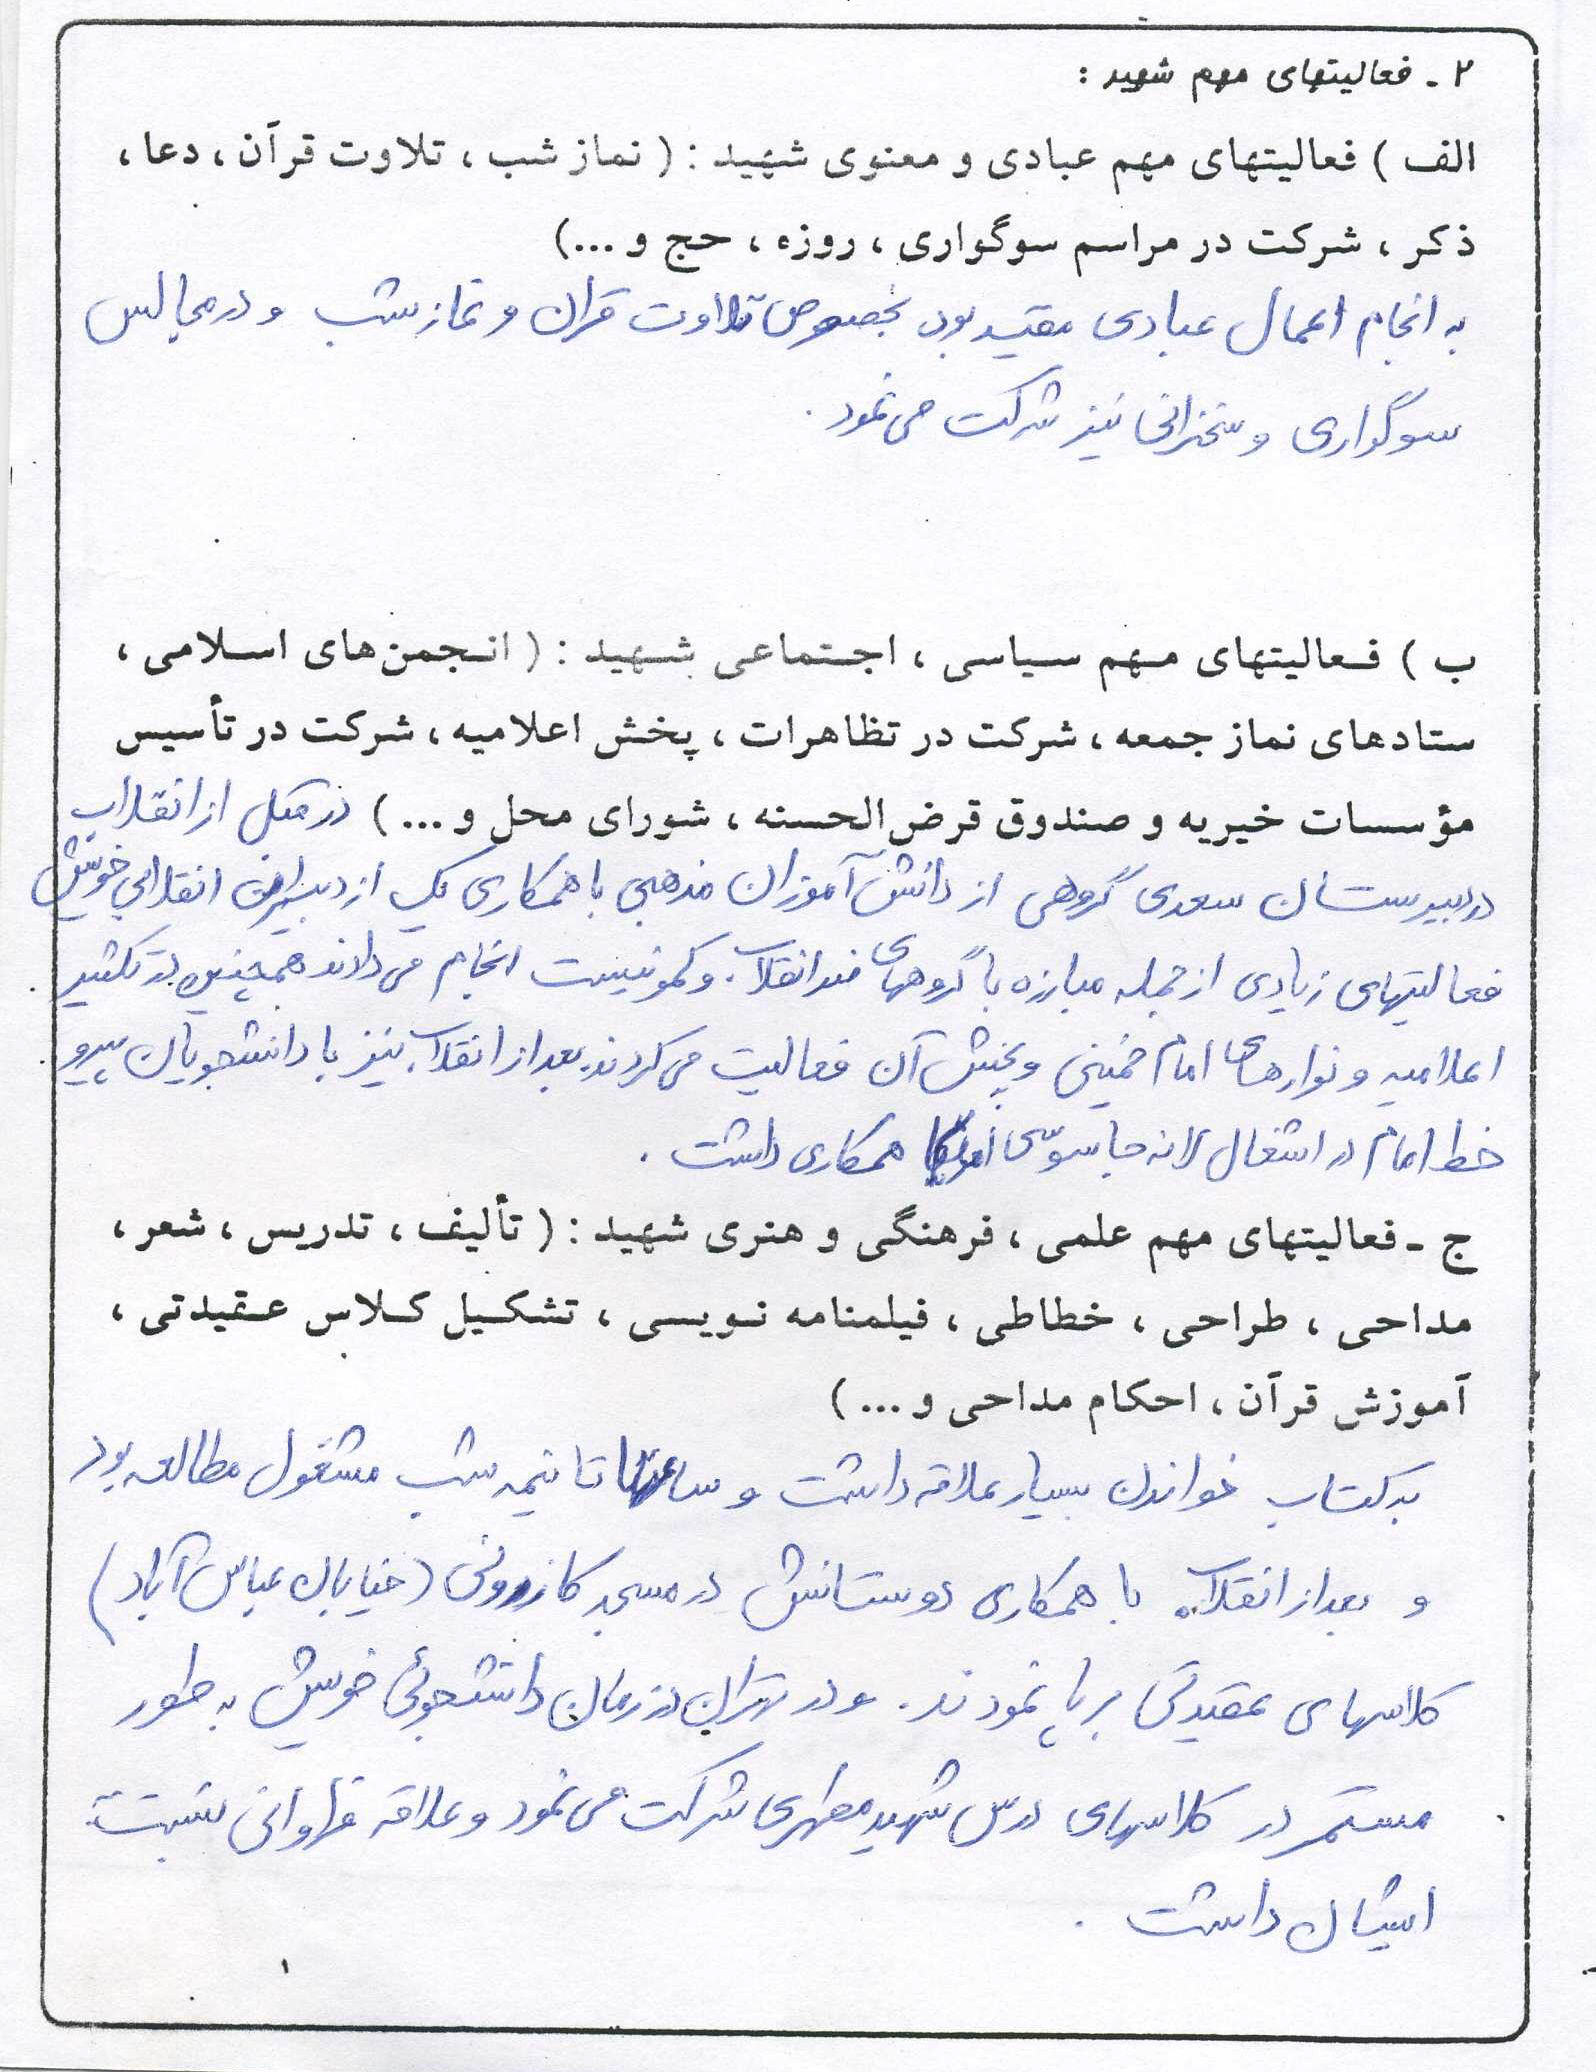 ۲ - فعالیتهای مهم شهید :
الف ) فعالیتهای مهم عبادی و معنوی شهید : ( نماز شب ، تلاوت قرآن ، دعا ،
ذکر ، شرکت در مراسم سوگواری ، روزه ، حج و ...)
به انجام اعمال عبادی مقید بود بخصوص تلاوت قران و نماز شب و در مجالس
سوگواری و سخنرانی نیز شرکت می نمود .
ب ) فعالیتهای مهم سیاسی ، اجتماعی شهید : ( انجمن های اسلامی ،
ستادهای نماز جمعه ، شرکت در تظاهرات ، پخش اعلامیه ، شرکت در تأسیس
مؤسسات خیریه و صندوق قرض الحسنه ، شورای محل و ... ) در قبل از انقلاب
در دبیرستان سعدی گروهی از دانش آموزان مذهبی با همکاری یکی از دبیران انقلابی خویش
فعالیتهای زیادی از جمله مبارزه با گروههای ضد انقلاب و کمونیست انجام می دادند همچنین در تکثیر
اعلامیه و نوارهای امام خمینی و پخش آن فعالیت می کردند. بعد از انقلاب نیز با دانشجویان پیرو
خط امام در اشغال لانه جاسوسی امریکا همکاری داشت .
ج - فعالیتهای مهم علمی ، فرهنگی و هنری شهید : ( تألیف ، تدریس ، شعر ،
مداحی ، طراحی ، خطاطی ، فیلمنامه نویسی ، تشکیل کلاس عقیدتی ،
آموزش قرآن ، احکام مداحی و ... )
به کتاب خواندن بسیار علاقه داشت و ساعتها تا نیمه شب مشغول مطالعه بود
و بعد از انقلاب با همکاری دوستانش در مسجد کازرونی (خیابان عباس آباد)
کلاسهای عقیدتی برپا نمودند. و در تهران در زمان دانشجوئی خویش به طور
مستمر در کلاسهای درس شهید مطهری شرکت می نمود و علاقه فراوانی نسبت به
ایشان داشت .
۱